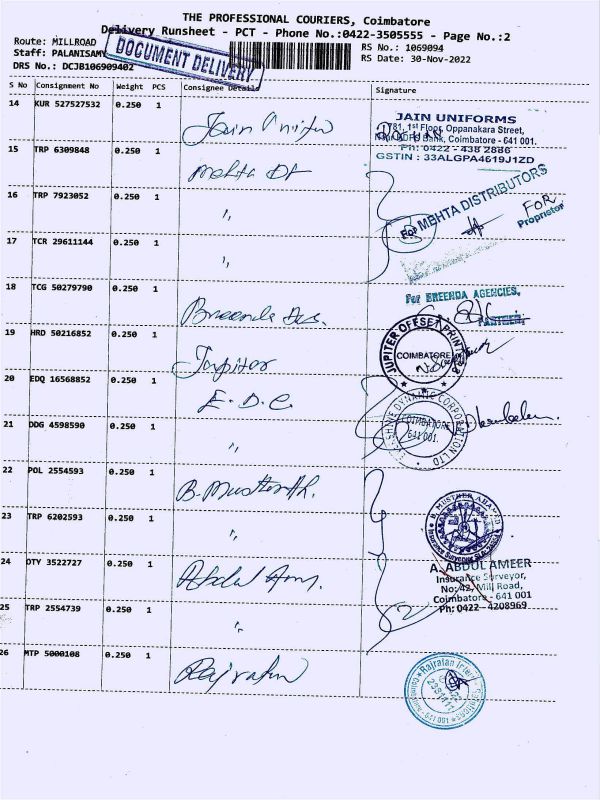 THE PROFESSIONAL COURIERS, Coimbatore
Delivery Runsheet - PCT - Phone No.:0422-3505555 - Page No.:2
Route: MILLROAD
RS No.: 1069094
Staff: PALANISAMY
DOCUMENT DELIVERY
RS Date: 30-Nov-2022
DRS No.: DCJB106909402
S No Consignment No Weight PCS Consignee Details Signature
14 KUR 527527532 0.250 1 Jain Unifo
JAIN UNIFORMS
781, 1st Floor, Oppanakara Street,
Bank, Coimbatore - 641 001.
Ph: 0422 - 438 2886
GSTIN : 33ALGPA4619J1ZD
15 TRP 6309848 0.250 1 Mehta Dt
16 TRP 7923052 0.250 1 ,,
For MEHTA DISTRIBUTORS
FOR
Proprietor
17 TCR 29611144 0.250 1 ,,
18 TCG 50279790 0.250 1 Breenda Aes.
For BREENDA AGENCIES,
PARTNER.
19 HRD 50216852 0.250 1 Jupiter
JUPITER OFFSET PRINTERS
COIMBATORE
20 EDQ 16568852 0.250 1 E.D.C.
21 DDG 4598590 0.250 1 ,,
DYNAMIC CORPORATION LTD
COIMBATORE
641 001.
22 POL 2554593 0.250 1 B. Mustherth.
23 TRP 6202593 0.250 1 ,,
B. MUSTHER AHAMED
Insurance Surveyor
24 OTY 3522727 0.250 1 Abdul Amr.
A. ABDUL AMEER
Insurance Surveyor,
No: 42, Mill Road,
Coimbatore - 641 001
Ph: 0422 - 4208969
25 TRP 2554739 0.250 1 ,,
26 MTP 5000108 0.250 1 Rajratan
Rajratan